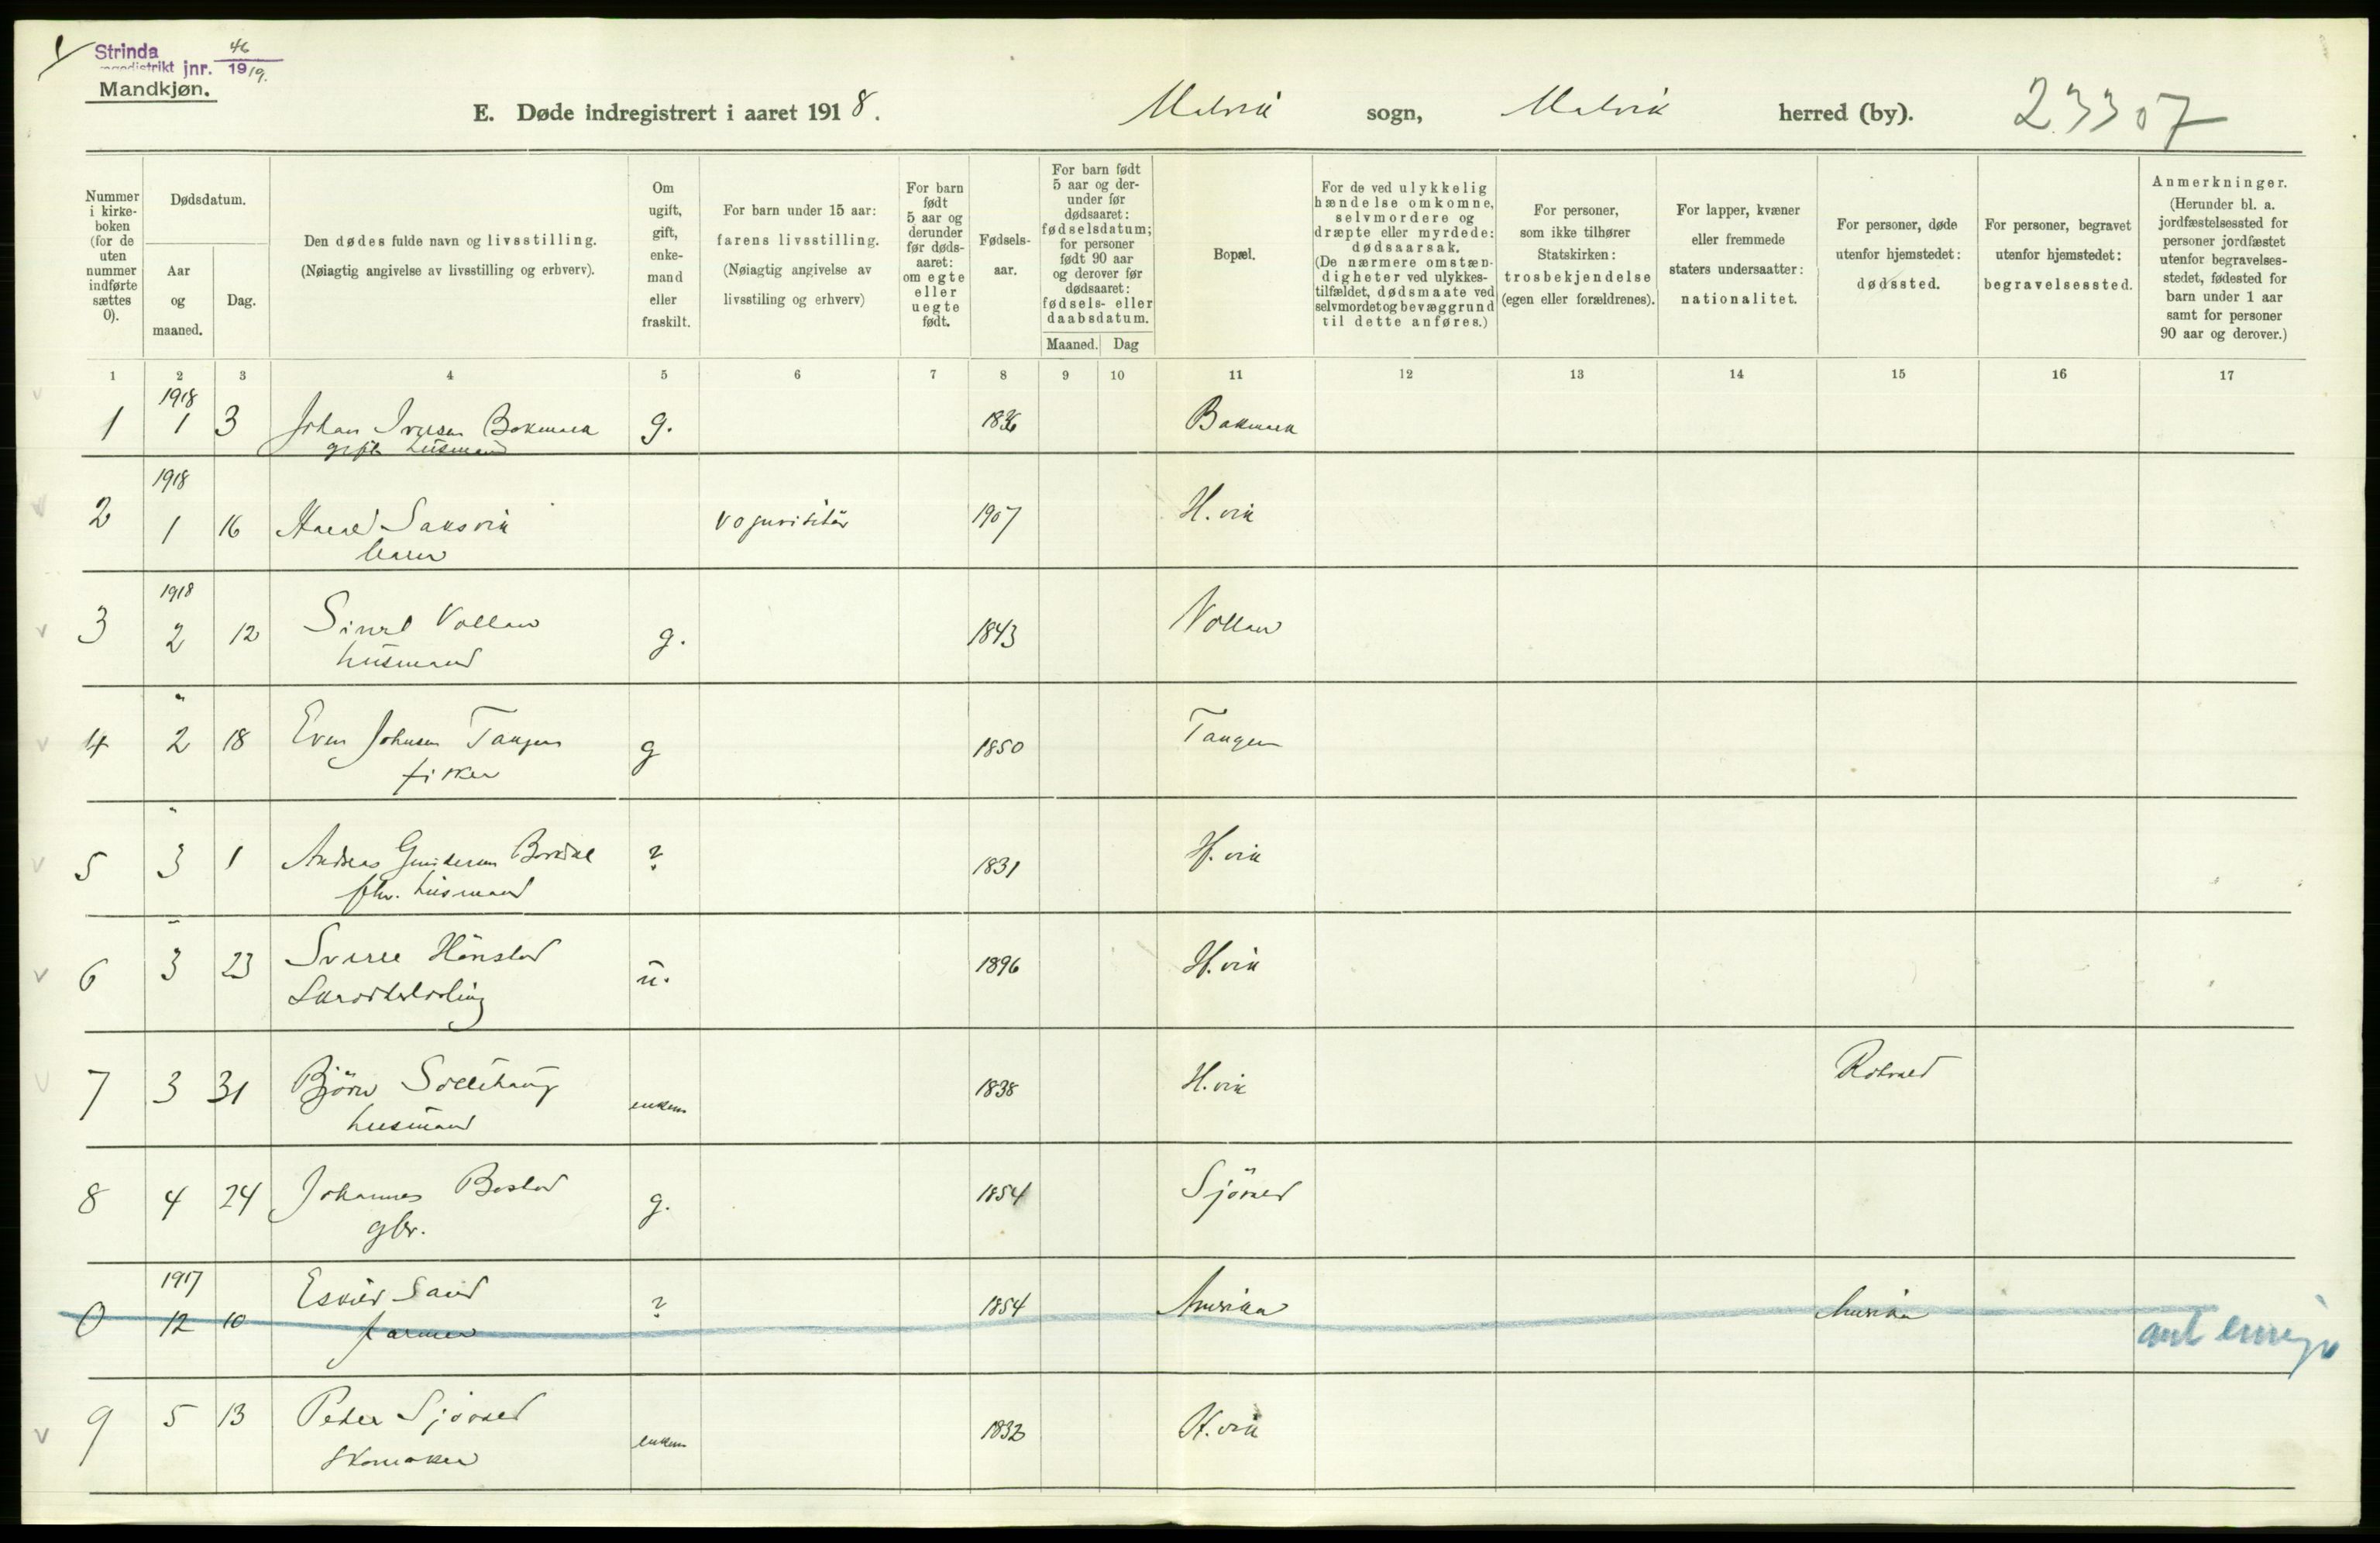 Strinda
46
jnr. 1919.
Mandkjøn.
E. Døde indregistrert i aaret 1918. Malvik sogn, Malvik herred (by). 23307
Nummer i kirke-boken (for de uten nummer indførte sættes 0).
Dødsdatum.
Aar og maaned.
Dag.
Den dødes fulde navn og livsstilling.
(Nøiagtig angivelse av livsstilling og erhverv).
Om ugift, gift, enke-mand eller fraskilt.
For barn under 15 aar: farens livsstilling.
(Nøiagtig angivelse av livsstiling og erhverv)
For barn født 5 aar og derunder før døds-aaret: om egte eller uegte født.
Fødsels-aar.
For barn født 5 aar og der-under før dødsaaret: fødselsdatum; for personer født 90 aar og derover før dødsaaret: fødsels- eller daabsdatum.
Maaned. Dag
Bopæl.
For de ved ulykkelig hændelse omkomne, selvmordere og dræpte eller myrdede: dødsaarsak.
(De nærmere omstæn-digheter ved ulykkes-tilfældet, dødsmaate ved selvmordet og bevæggrund til dette anføres.)
For personer, som ikke tilhører Statskirken: trosbekjendelse (egen eller forældrenes).
For lapper, kvæner eller fremmede staters undersaatter: nationalitet.
For personer, døde utenfor hjemstedet: dødssted.
For personer, begravet utenfor hjemstedet: begravelsessted.
Anmerkninger.
(Herunder bl. a. jordfæstelsessted for personer jordfæstet utenfor begravelses-stedet, fødested for barn under 1 aar samt for personer 90 aar og derover.)
1 2 3 4 5 6 7 8 9 10 11 12 13 14 15 16 17
1918
1 1 3 Johan Iversen g. 1836
husmand
1918
2 1 16 Saksvik 1907 H.vik
barn
1918
3 2 12 Sivert Vollan g. 1843 Vollan
husmand
"
4 2 18 Even Johnsen Tangen g 1850 Tangen
fisker
"
5 3 1 Andreas Gundersen ? 1831 H.vik
fhv. husmand
"
6 3 23 Sverre Hønstad u. 1896 H.vik
7 3 31 Bjørn enkem 1838 H.vik Rotvold
husmand
8 4 24 Johannes Bostad g. 1854
gbr.
1917
0 12 10 Sand ? 1854 Amerika Amerika
farmer
ant emigr
9 5 13 Peder enkem H.vik
skomaker